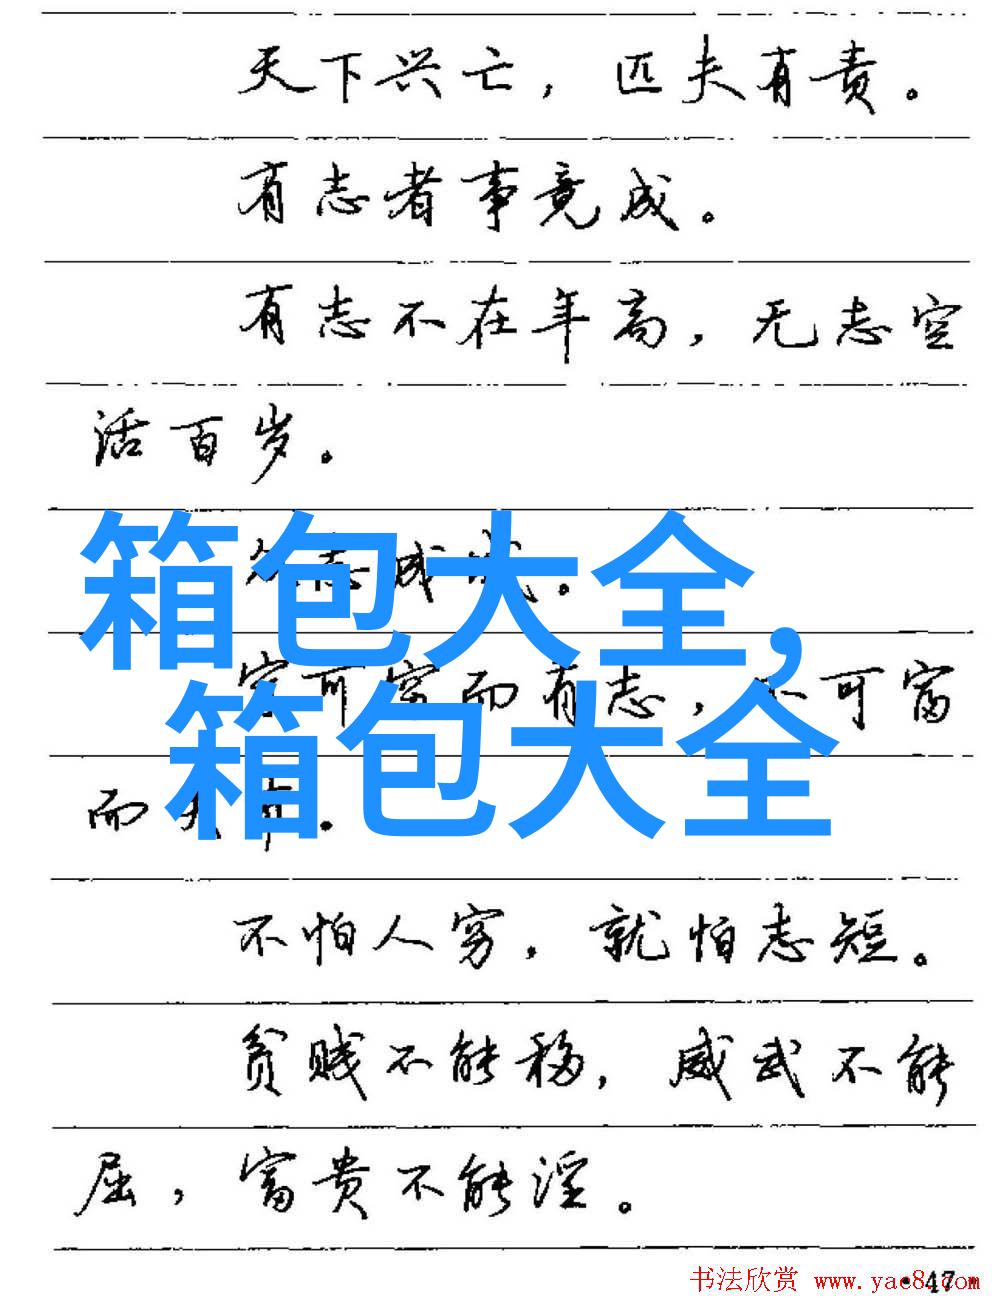 天下兴亡，匹夫有责。
有志者事竟成。
有志不在年高，无志空
活百岁。
箱包大全，
志成
可穷而有志，不可富
箱包大全
而
不怕人穷，就怕志短。
贫贱不能移，威武不能
屈，富贵不能淫。
·47·
书法欣赏 www.yac8.com